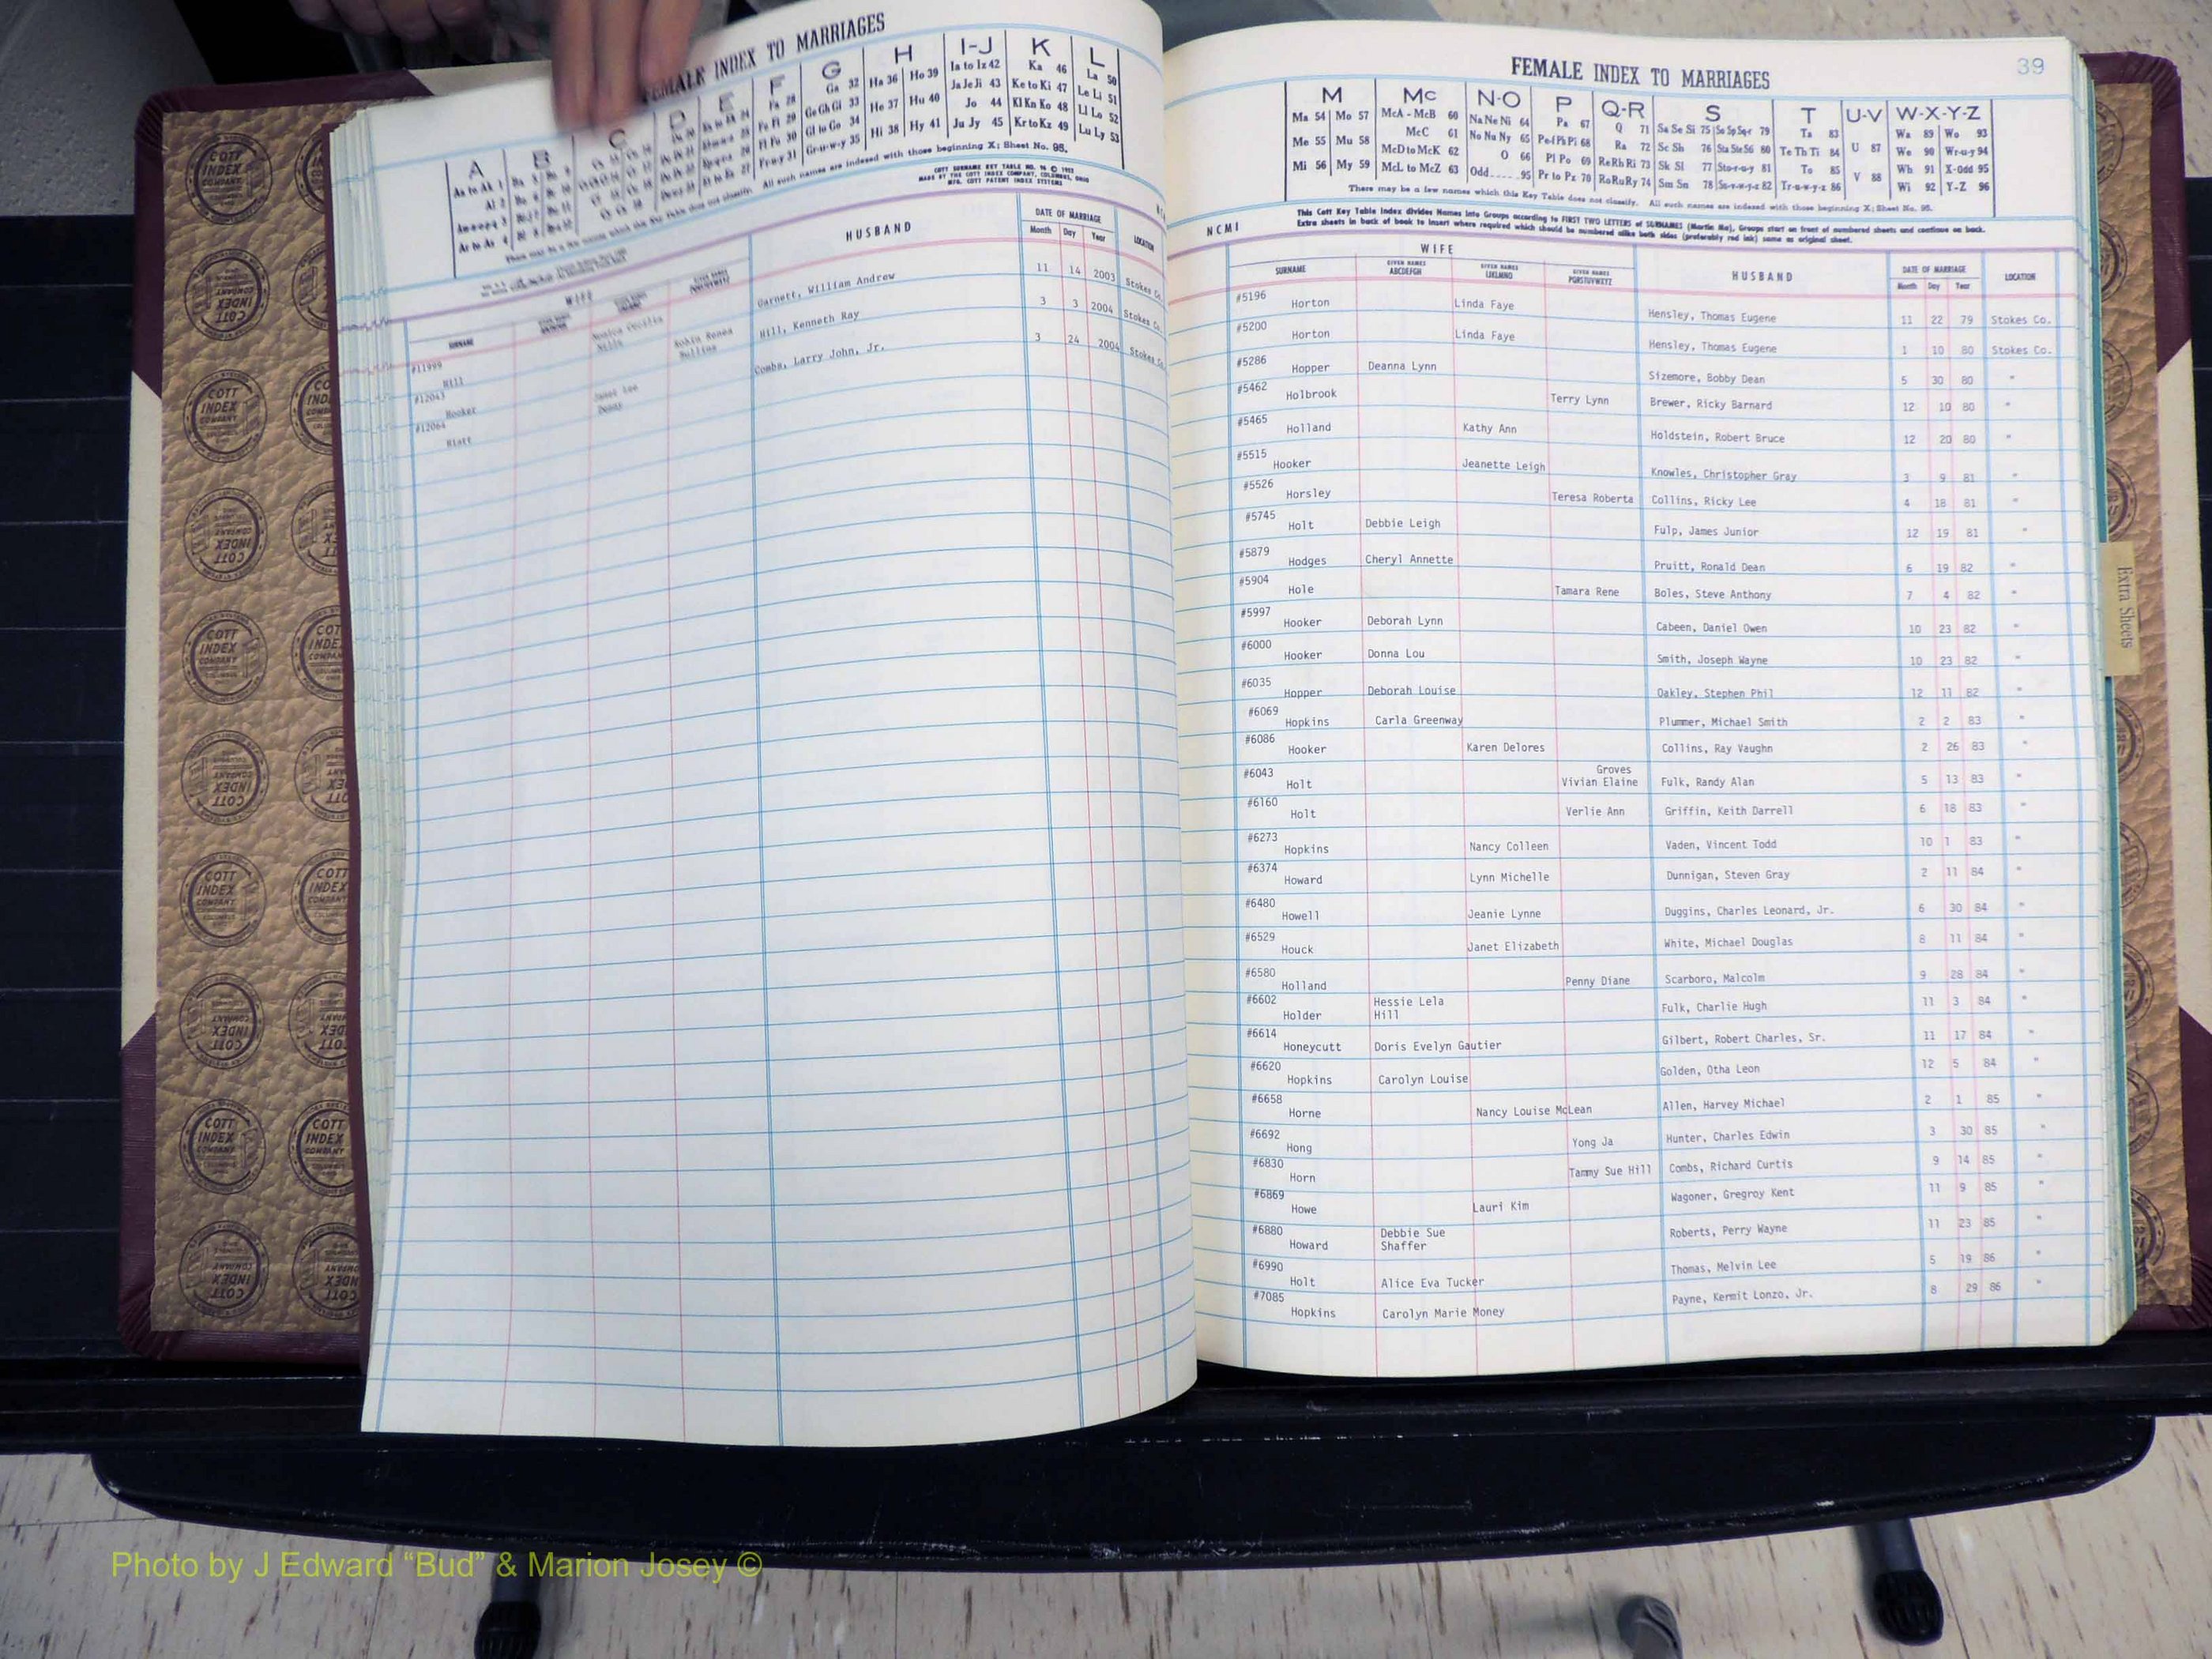 FEMALE INDEX TO MARRIAGES
G H I-J K L
Ga 32 Ha 36 Ho 39 Ia to Iz 42 Ka 46 La 50
Ge Gh Gi 33 He 37 Hu 40 Ja Je Ji 43 Ke to Ki 47 Le Li 51
Gl to Go 34 Hi 38 Hy 41 Jo 44 Kl Kn Ko 48 Ll Lo 52
Gr-u-w-y 35 Ju Jy 45 Kr to Kz 49 Lu Ly 53
A B C D E F
All such names are indexed with those beginning X; Sheet No. 96.
WIFE HUSBAND DATE OF MARRIAGE LOCATION
SURNAME Month Day Year
#11999 Hill Garnett, William Andrew 11 14 2003 Stokes Co.
#12043 Hooker Robin Renea Bullins Hill, Kenneth Ray 3 3 2004 Stokes Co.
#12064 Hiatt Janet Lee Combs, Larry John, Jr. 3 24 2004 Stokes Co.
FEMALE INDEX TO MARRIAGES 39
M Mc N-O P Q-R S T U-V W-X-Y-Z
Ma 54 Mo 57 McA - McB 60 Na Ne Ni 64 Pa 67 Q 71 Sa Se Si 75 So Sp Sq-r 79 Ta 83 U 87 Wa 89 Wo 93
Me 55 Mu 58 McC 61 No Nu Ny 65 Pe-f Ph Pi 68 Ra 72 Sc Sh 76 Sta Ste Sti 80 Te Th Ti 84 V 88 We 90 Wr-u-y 94
Mi 56 My 59 McD to McK 62 O 66 Pl Po 69 Re Rh Ri 73 Sk Sl 77 Sto-r-u-y 81 To 85 Wh 91 X-Odd 95
McL to McZ 63 Odd 95 Pr to Pz 70 Ro Ru Ry 74 Sm Sn 78 Su-v-w-y-z 82 Tr-u-w-y-z 86 Wi 92 Y-Z 96
There may be a few names which this Key Table does not classify. All such names are indexed with those beginning X; Sheet No. 96.
NCMI
This Cott Key Table Index divides Names into Groups according to FIRST TWO LETTERS of SURNAMES (Martin Ma), Groups start on front of numbered sheets and continue on back.
Extra sheets in back of book to insert where required which should be numbered alike both sides (preferably red ink) same as original sheet.
WIFE
SURNAME GIVEN NAMES ABCDEFGH GIVEN NAMES IJKLMNO GIVEN NAMES PQRSTUVWXYZ HUSBAND DATE OF MARRIAGE LOCATION
Month Day Year
#5196 Horton Linda Faye Hensley, Thomas Eugene 11 22 79 Stokes Co.
#5200 Horton Linda Faye Hensley, Thomas Eugene 1 10 80 Stokes Co.
#5286 Hopper Deanna Lynn Sizemore, Bobby Dean 5 30 80 "
#5462 Holbrook Terry Lynn Brewer, Ricky Barnard 12 10 80 "
#5465 Holland Kathy Ann Holdstein, Robert Bruce 12 20 80 "
#5515 Hooker Jeanette Leigh Knowles, Christopher Gray 3 9 81 "
#5526 Horsley Teresa Roberta Collins, Ricky Lee 4 18 81 "
#5745 Holt Debbie Leigh Fulp, James Junior 12 19 81 "
#5879 Hodges Cheryl Annette Pruitt, Ronald Dean 6 19 82 "
#5904 Hole Tamara Rene Boles, Steve Anthony 7 4 82 "
#5997 Hooker Deborah Lynn Cabeen, Daniel Owen 10 23 82 "
#6000 Hooker Donna Lou Smith, Joseph Wayne 10 23 82 "
#6035 Hopper Deborah Louise Oakley, Stephen Phil 12 11 82 "
#6069 Hopkins Carla Greenway Plummer, Michael Smith 2 2 83 "
#6086 Hooker Karen Delores Collins, Ray Vaughn 2 26 83 "
#6043 Holt Groves Vivian Elaine Fulk, Randy Alan 5 13 83 "
#6160 Holt Verlie Ann Griffin, Keith Darrell 6 18 83 "
#6273 Hopkins Nancy Colleen Vaden, Vincent Todd 10 1 83 "
#6374 Howard Lynn Michelle Dunnigan, Steven Gray 2 11 84 "
#6480 Howell Jeanie Lynne Duggins, Charles Leonard, Jr. 6 30 84 "
#6529 Houck Janet Elizabeth White, Michael Douglas 8 11 84 "
#6580 Holland Penny Diane Scarboro, Malcolm 9 28 84 "
#6602 Holder Hessie Lela Hill Fulk, Charlie Hugh 11 3 84 "
#6614 Honeycutt Doris Evelyn Gautier Gilbert, Robert Charles, Sr. 11 17 84 "
#6620 Hopkins Carolyn Louise Golden, Otha Leon 12 5 84 "
#6658 Horne Nancy Louise McLean Allen, Harvey Michael 2 1 85 "
#6692 Hong Yong Ja Hunter, Charles Edwin 3 30 85 "
#6830 Horn Tammy Sue Hill Combs, Richard Curtis 9 14 85 "
#6869 Howe Lauri Kim Wagoner, Gregroy Kent 11 9 85 "
#6880 Howard Debbie Sue Shaffer Roberts, Perry Wayne 11 23 85 "
#6990 Holt Alice Eva Tucker Thomas, Melvin Lee 5 19 86 "
#7085 Hopkins Carolyn Marie Money Payne, Kermit Lonzo, Jr. 8 29 86 "
Extra Sheets
COTT INDEX COMPANY
Photo by J Edward “Bud” & Marion Josey ©